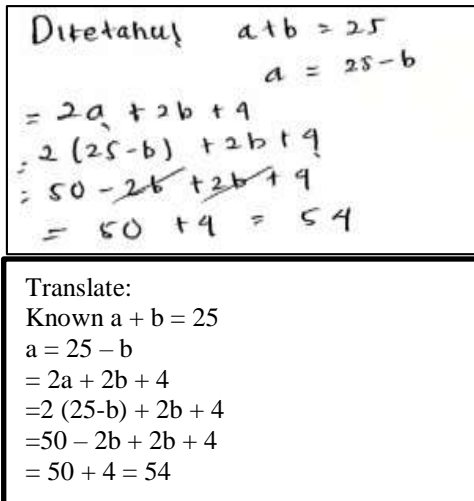 Diketahui a+b = 25
a = 25-b
= 2a + 2b + 4
= 2 (25-b) + 2b + 4
= 50 - 2b + 2b + 4
= 50 + 4 = 54
Translate:
Known a + b = 25
a = 25 – b
= 2a + 2b + 4
=2 (25-b) + 2b + 4
=50 – 2b + 2b + 4
= 50 + 4 = 54